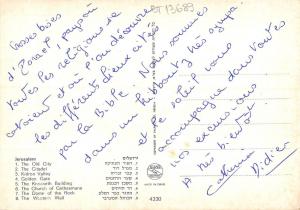 ET 13689
Grosses bises
d'Israël pays où
toutes les religions se
côtoient et où l'on découvre
les différents lieux cités
par la Bible. Nous sommes
dans un kibboutz très sympa
et le soleil nous
accompagne dans toutes
nos excursions
A très bientôt
Catherine
Didier
Jerusalem
1. The Old City
2. The Citadel
3. Kidron Valley
4. Golden Gate
5. The Knesseth Building
6. The Church of Gethsemane
7. The Dome of the Rock
8. The Western Wall
ירושלים
1. העיר העתיקה
2. מגדל דוד
3. נחל קדרון
4. שער הרחמים
5. משכן הכנסת
8. הכותל המערבי
4330